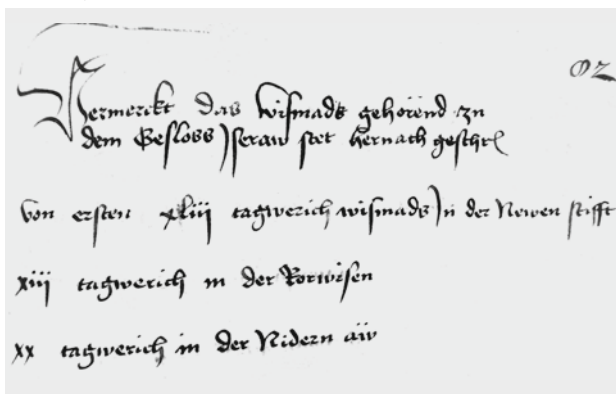 Vermerckt das wismads gehörend zu
dem Gesloss Iseraw stet hernach geschr
von ersten xliij tagwerich wismads In der Newen stifft
xiij tagwerich in der Rorwisen
xx tagwerich in der Nidern aw